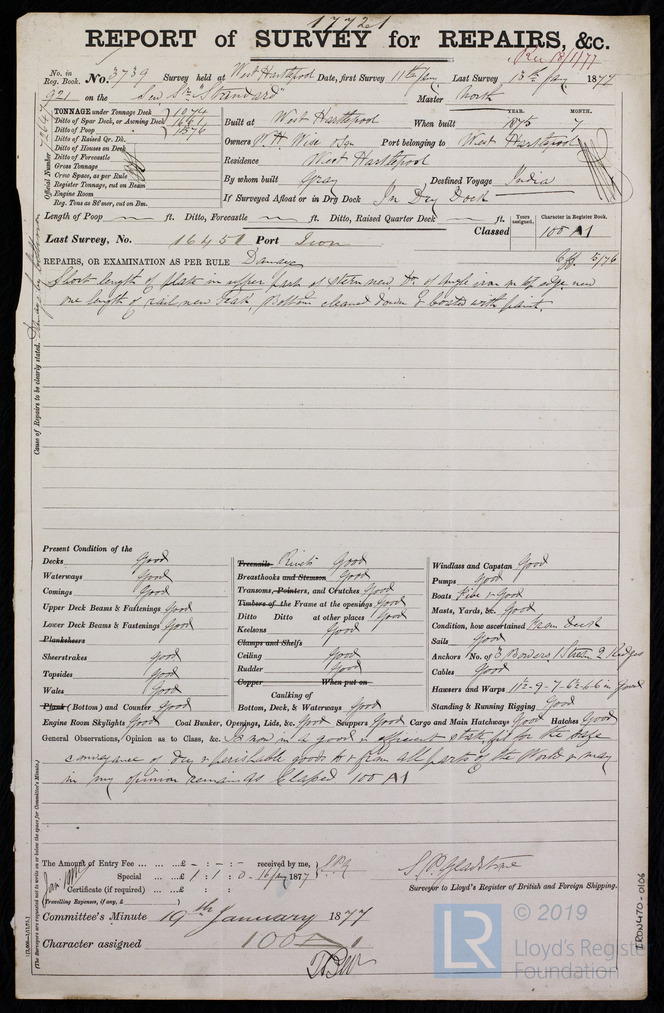 17721
REPORT of SURVEY for REPAIRS, &c.
Rec 18/1/77
No. in Reg. Book. No. 3739 Survey held at West Hartlepool Date, first Survey 11th Jany Last Survey 13th Jany 1877
921 on the Screw Sr. "Standard" Master North
TONNAGE under Tonnage Deck 1074
Ditto of Spar Deck, or Awning Deck
Ditto of Poop 1876
Ditto of Raised Qr. Dk.
Ditto of Houses on Deck
Ditto of Forecastle
Gross Tonnage
Crew Space, as per Rule
Register Tonnage, cut on Beam
Engine Room
Reg. Tons as St'mer, cut on Bm.
Official Number
Built at West Hartlepool When built YEAR. 1875 MONTH. 7
Owners Wise Port belonging to West Hartlepool
Residence West Hartlepool
By whom built Gray Destined Voyage India
If Surveyed Afloat or in Dry Dock In Dry Dock
Length of Poop — ft. Ditto, Forecastle — ft. Ditto, Raised Quarter Deck — ft.
Years assigned. Character in Register Book.
Classed 100 A1
Last Survey, No. 16451 Port Iron
REPAIRS, OR EXAMINATION AS PER RULE Damage 5/76
Short length of plate in upper part of Stern new, Do. of Angle iron on top edge new
one length of rail new Teak, Bottom cleaned down & coated with paint.
Cause of Repairs to be clearly stated. Damage by
Present Condition of the
Decks Good
Waterways Good
Comings Good
Upper Deck Beams & Fastenings Good
Lower Deck Beams & Fastenings Good
Planksheers
Sheerstrakes Good
Topsides Good
Wales Good
Plank (Bottom) and Counter Good
Treenails Rivets Good
Breasthooks and Stemson Good
Transoms, Pointers, and Crutches Good
Timbers of the Frame at the openings Good
Ditto Ditto at other places Good
Keelsons Good
Clamps and Shelfs
Ceiling Good
Rudder Good
Copper When put on
Caulking of
Bottom, Deck, & Waterways Good
Windlass and Capstan Good
Pumps Good
Boats Five & Good
Masts, Yards, &c. Good
Condition, how ascertained From Deck
Sails Good
Anchors No. of 3 Bowers 1 Stream 2 Kedges
Cables Good
Hawsers and Warps Good
Standing & Running Rigging Good
Engine Room Skylights Good Coal Bunker, Openings, Lids, &c. Good Scuppers Good Cargo and Main Hatchways Good Hatches Good
General Observations, Opinion as to Class, &c. Is now in a good & efficient state, fit for the safe
conveyance of dry & perishable goods to & from all parts of the World & may
in my opinion remain as Classed 100 A1
The Amount of Entry Fee ... ... ...£ - : - : - received by me,
Special ... ...£ 1 : 1 : 0 - 16 Jany 1877
Certificate (if required) ... ...£ : :
(Travelling Expenses, if any, £ )
S. P. Gladstone
Surveyor to Lloyd's Register of British and Foreign Shipping.
Committee's Minute 19th January 1877
Character assigned 100 A1
(The Surveyors are requested not to write on or below the space for Committee's Minute.)
IRON470-0106
LR
© 2019
Lloyd's Register
Foundation